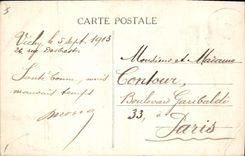 CARTE POSTALE
Vichy le 5 sept. 1913
22 rue
Santé bonne, mais
mauvais temps
Monsieur et Madame
Contour,
Boulevard Garibaldi
33,
Paris